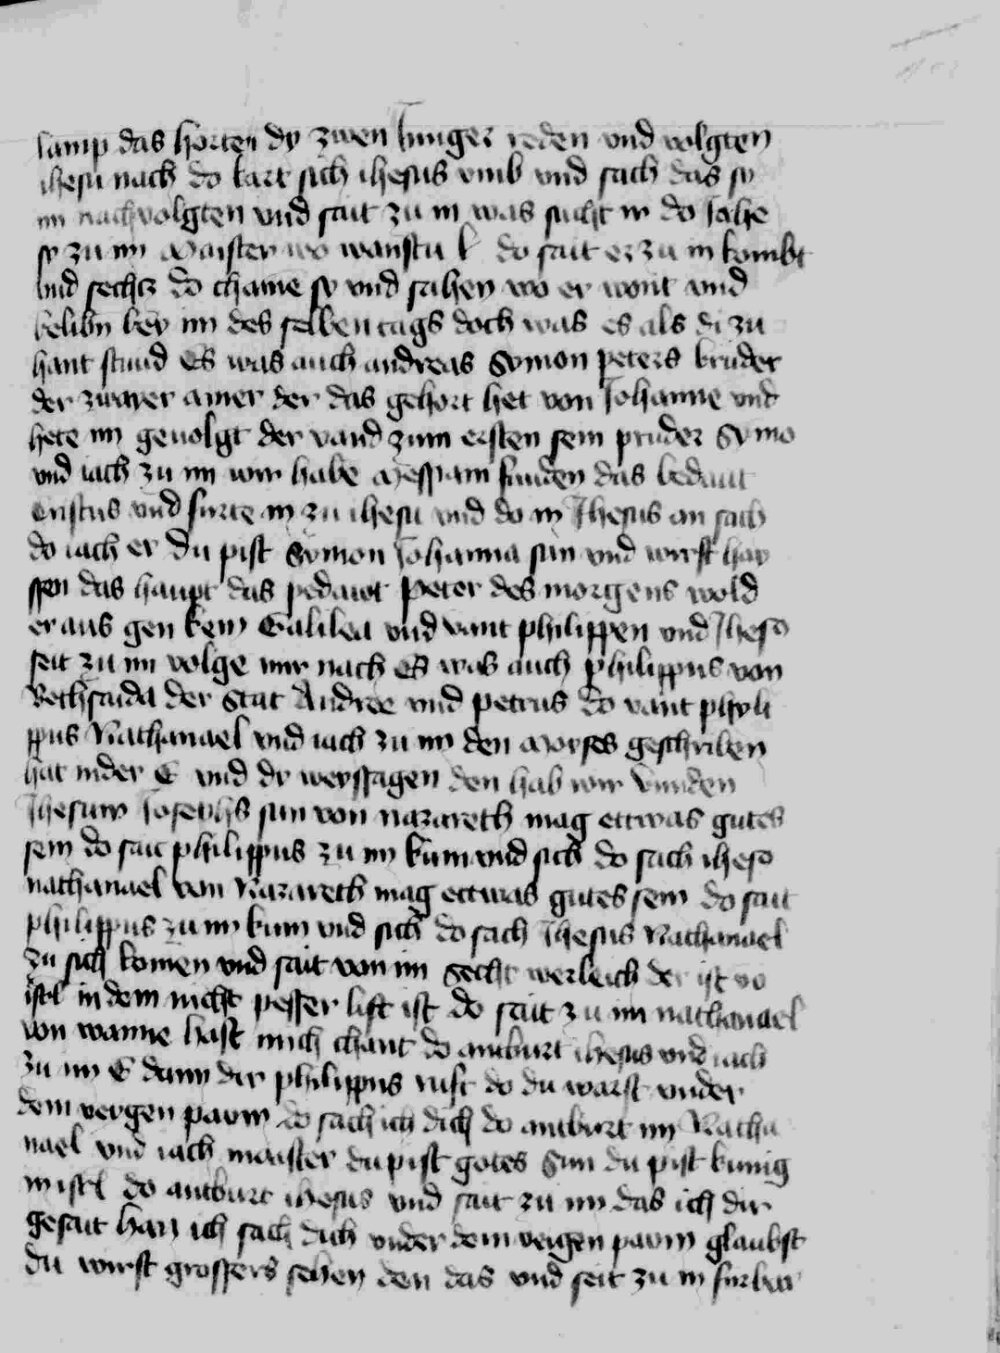 lamp das horten dy zwen Junger reden und volgten
ihesu nach do kart sich ihesus umb und sach das sy
im nachvolgten und sait zu in was sucht ir do Jahe
sy zu im Maister wo wanstu do sait er zu in kombt
und sechtz do chame sy und sahen wo er wont und
beliben bey im des selben tags doch was es als di zu
hant stund Es was auch andreas Symon peters bruder
der zwayer ainer der das gehort het von Johanne und
hete im gevolgt der vand zum ersten sein pruder Symo
und iach zu im wir habe Messiam funden das bedaut
Cristus und furte in zu ihesu und do in Jhesus an sach
do iach er Du pist Symon Johanna sun und wirst hay
ssen das haupt das pedawt Peter des morgens wold
er aus gen keyn Galilea und vant philippen und Jheso
seit zu im volge mir nach Es was auch philippus von
Bethsaida der Stat Andree und petrus do vant phyli
ppus Nathanael und iach zu im den Moyses geschriben
hat in der E und dy weyssagen den hab wir vunden
Jhesum Josephs sun von nazareth mag ettwas gutes
sein do sait philippus zu im kum und sich do sach iheso
nathanael von Nazareth mag ettwas gutes sein do sait
philippus zu im kum und sich do sach Jhesus Nathanael
zu sich komen und sait von im Secht werleich der ist vo
isrl in dem nicht pesser list ist do sait zu im nathanael
von wanne hast mich chant do antburt ihesus und iach
zu im E dann dir philippus ruft do du warst under
dem veygen pawm do sach ich dich do antburt im Natha
nael und iach maister du pist gotes Sun du pist kunig
in isrl do antburt ihesus und sait zu im das ich dir
gesait han ich sach dich under dem veigen pawm glaubst
du wirst grossers sehen den das und seit zu in furbar